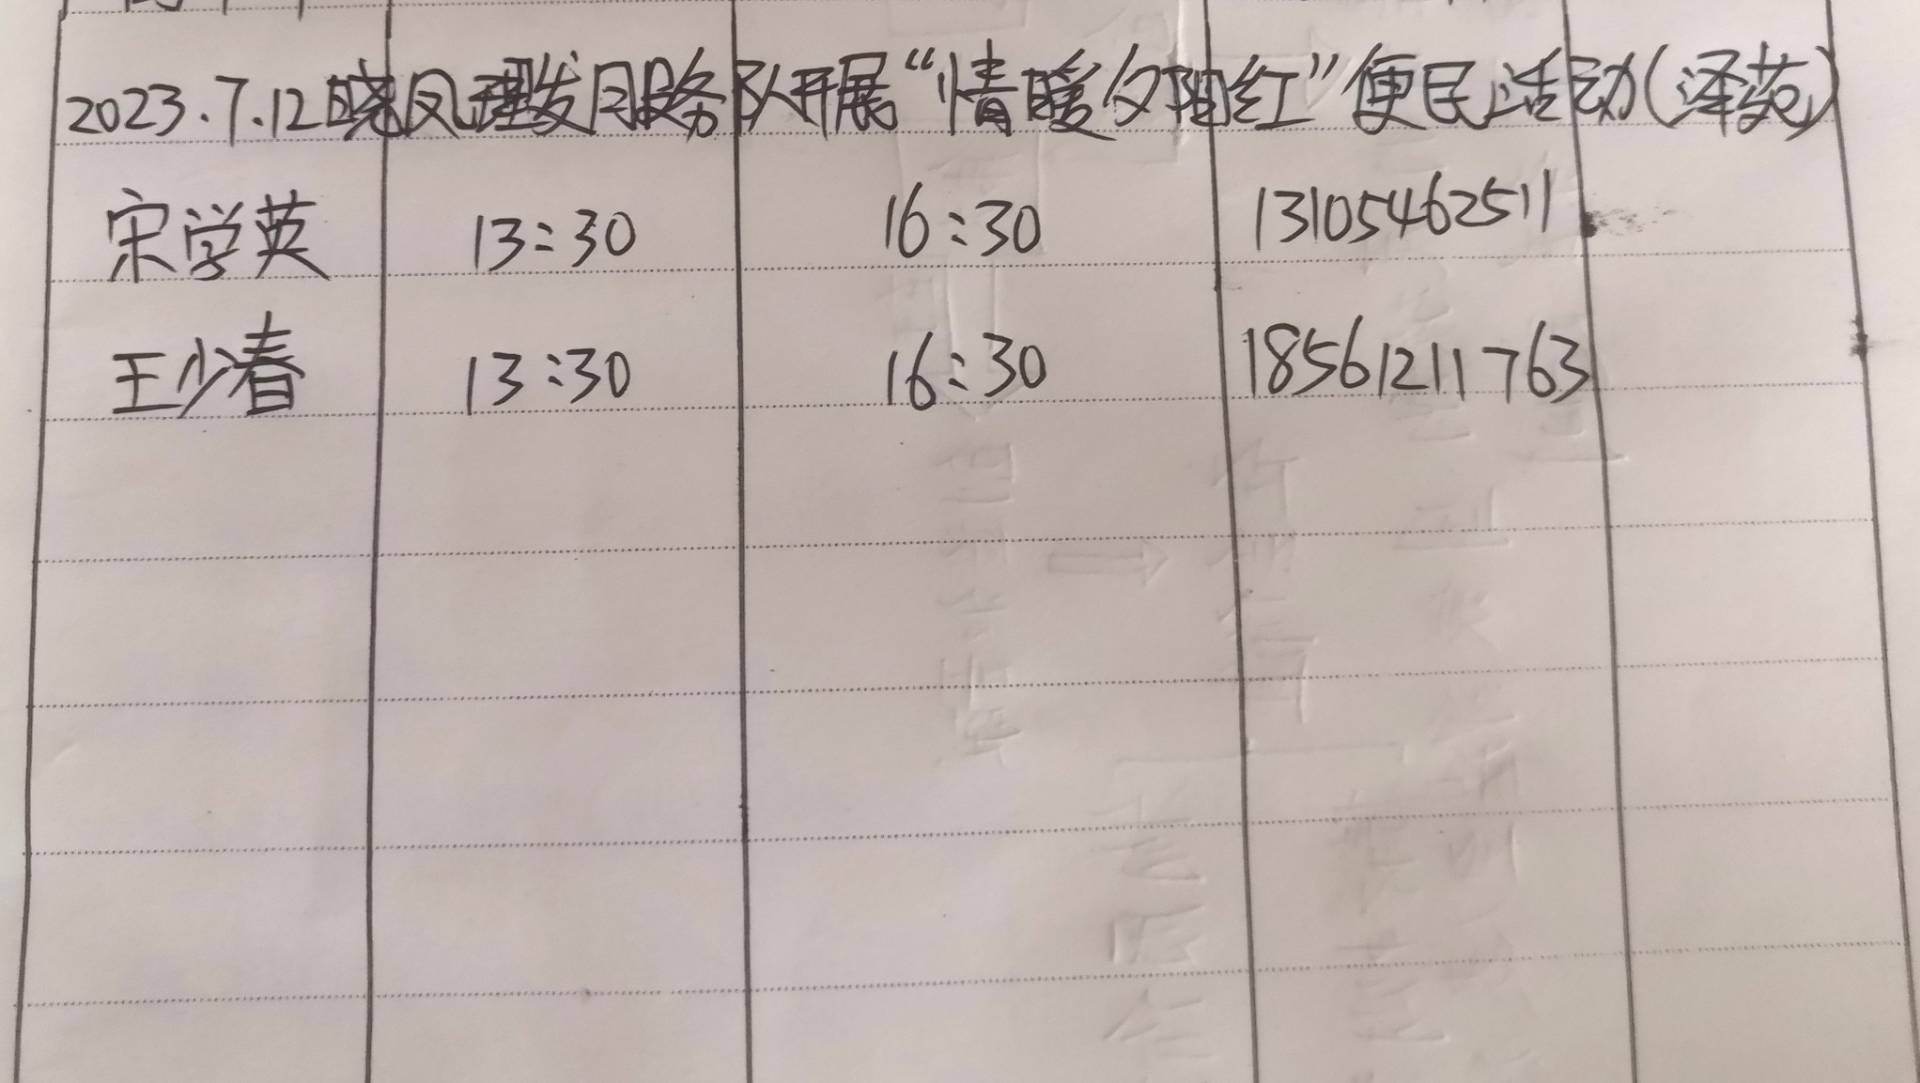 2023.7.12晓凤理发服务队开展“情暖夕阳红”便民活动(泽苑)
宋学英 13:30 16:30 13105462511
王少春 13:30 16:30 18561211763